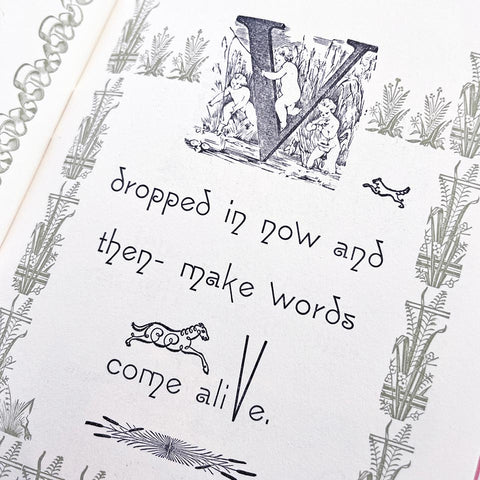 V
dropped in now and
then- make words
come aliVe.